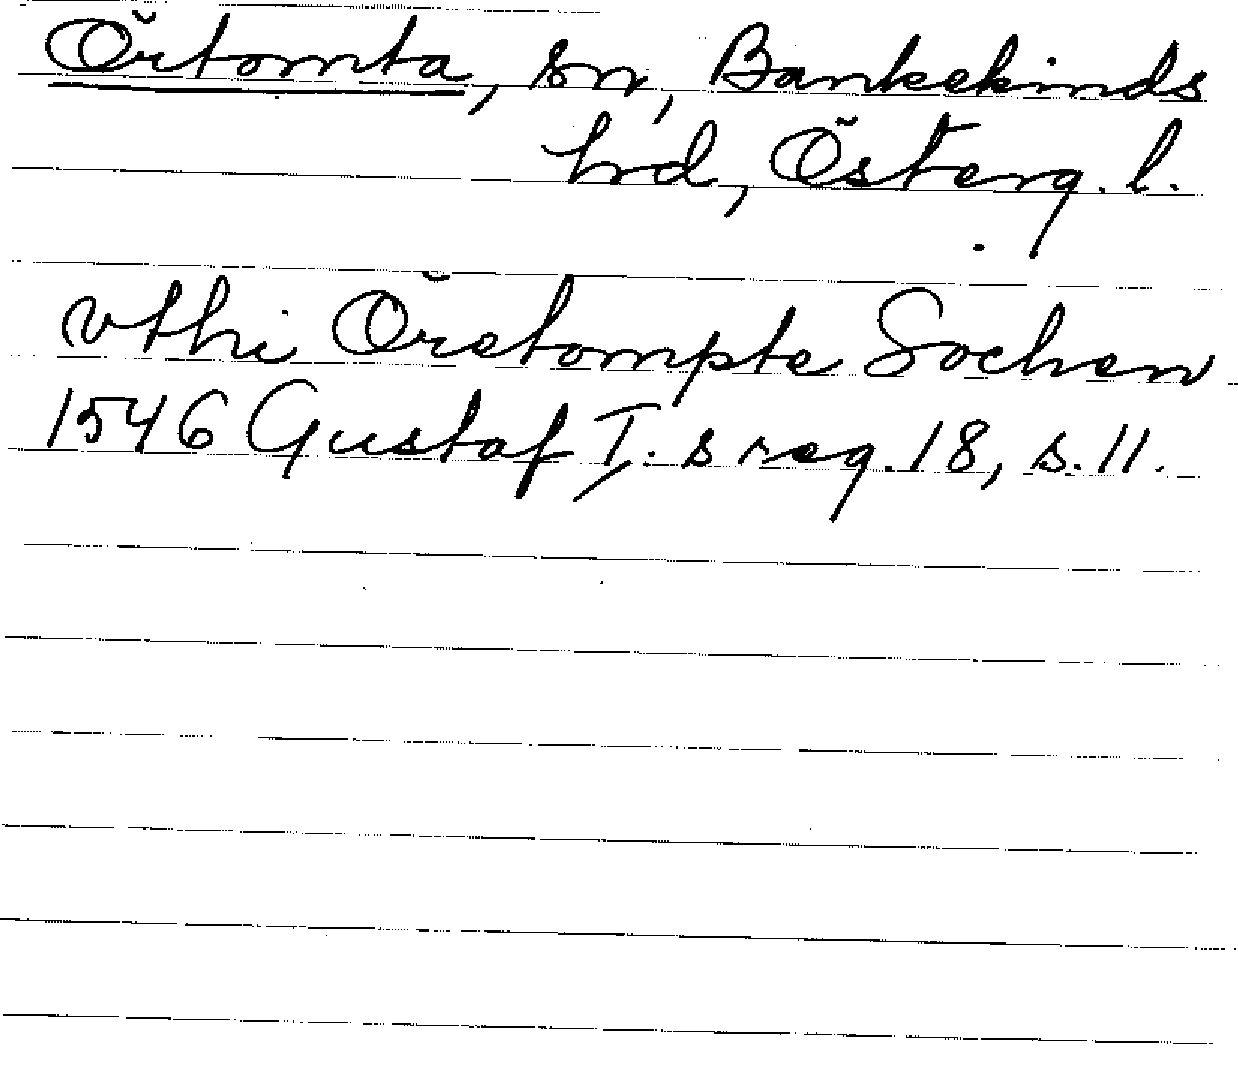 Örtomta, sn, Bankekinds
hrd, Österg. l.
vthi Öretompte Sochen
1546 Gustaf I:s reg. 18, s. 11.